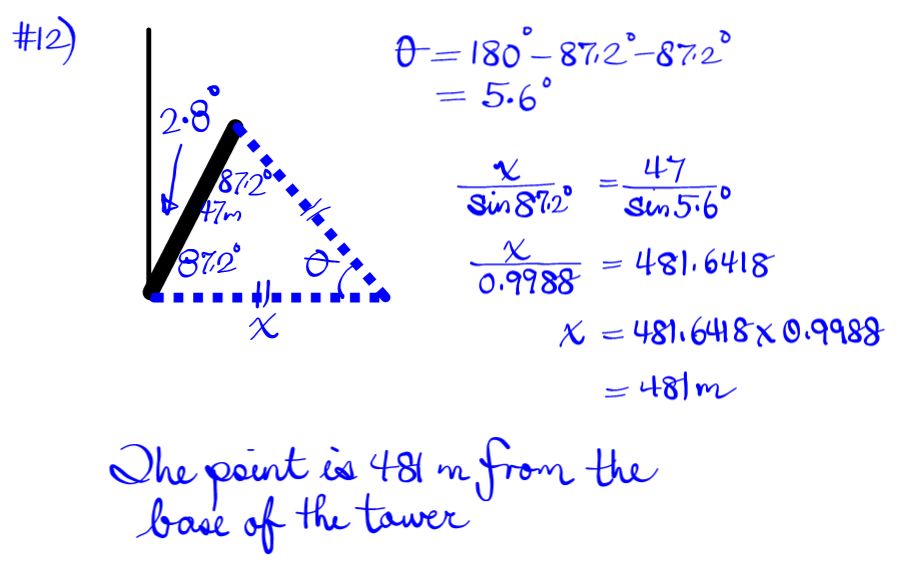 #12)
θ = 180° - 87.2° - 87.2°
= 5.6°
2.8°
87.2°
47m
87.2°
θ
x
x/sin 87.2° = 47/sin 5.6°
x/0.9988 = 481.6418
x = 481.6418 x 0.9988
= 481m
The point is 481 m from the
base of the tower